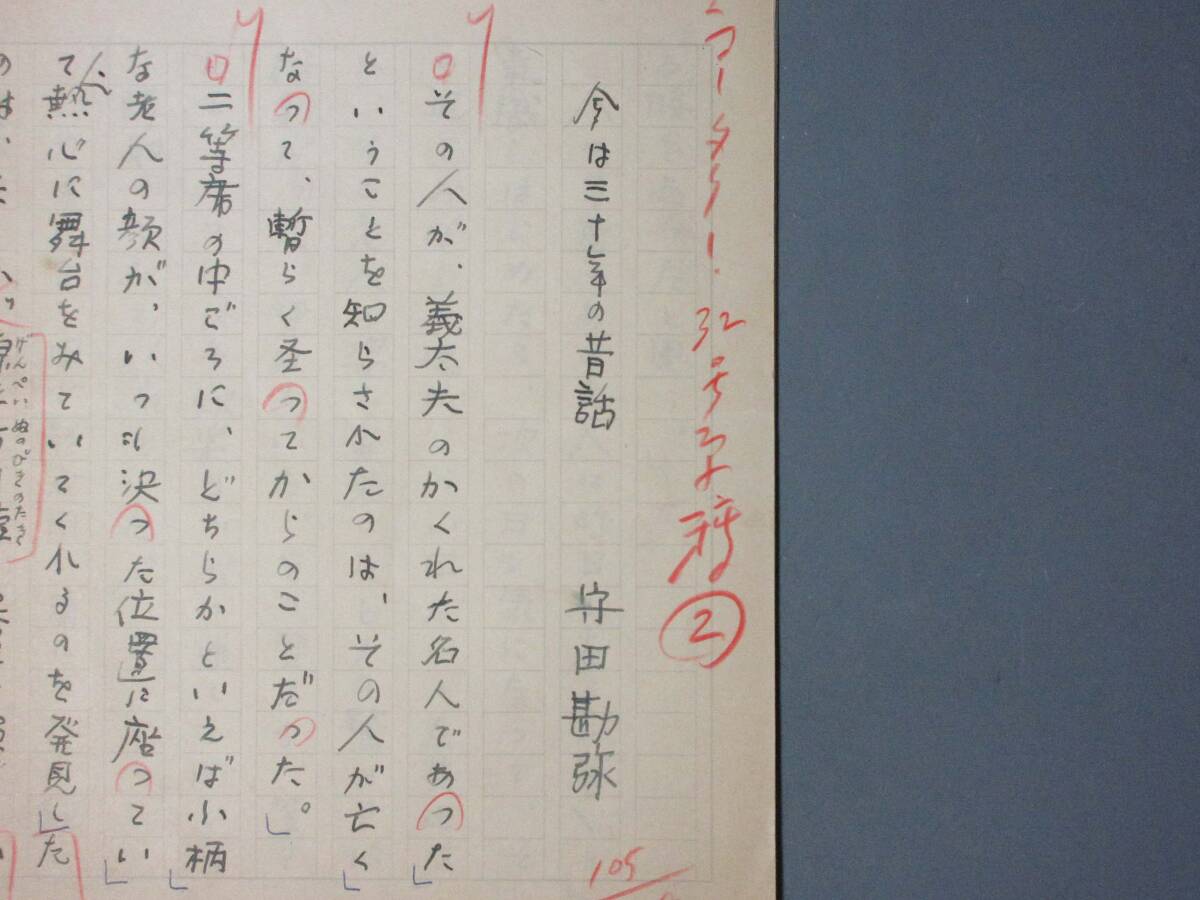 32号
②
今は三十年の昔話
守田勘弥
その人が、義太夫のかくれた名人であった
ということを知らされたのは、その人が亡く
なって、暫らく経ってからのことだった。
二等席の中ごろに、どちらかといえば小柄
な老人の顔が、いつも決った位置に座ってい
て、熱心に舞台をみていてくれるのを発見した
のは、
げんぺいぬのびきのたき
105